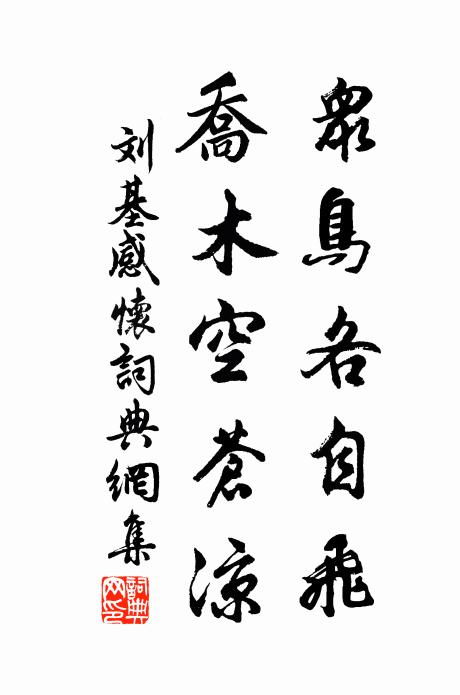 眾鳥各自飛
喬木空蒼涼
刘基感懷詞典網集
詞典
网印